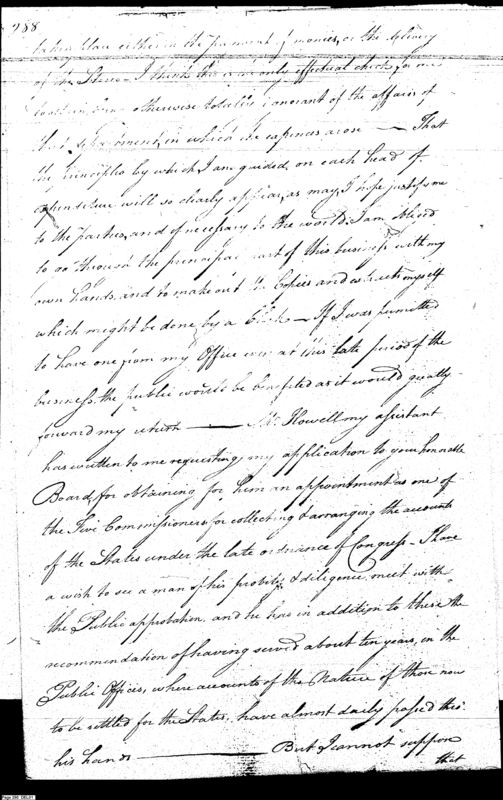 288
taken place either in the payment of monies, or the delivery
of the Stores — I think this is an only effectual check, for one
otherwise totally ignorant of the affairs of
that department, in which the expences arose — That
the principles by which I am guided, on each head of
expenditure will so clearly appear, as may I hope justify me
to the parties, and if necessary to the world. I am obliged
to go through the principal part of this business with my
own hands, and to make out the Copies and extracts myself
which might be done by a Clerk — If I was permitted
to have one from my Office even at this late period of the
business, the public would be benefited as it would greatly
forward my return — Mr. Howell my assistant
has written to me requesting my application to your honorable
Board, for obtaining for him an appointment as one of
the Five Commissioners for collecting & arranging the accounts
of the States under the late ordinance of Congress — I have
a wish to see a man of his probity & diligence, meet with
the Public approbation, and he has in addition to these the
recommendation of having served about ten years, in the
Public Offices, where accounts of the Nature of those now
to be settled for the States, have almost daily passed thro:
his hands — But I cannot suppose
that